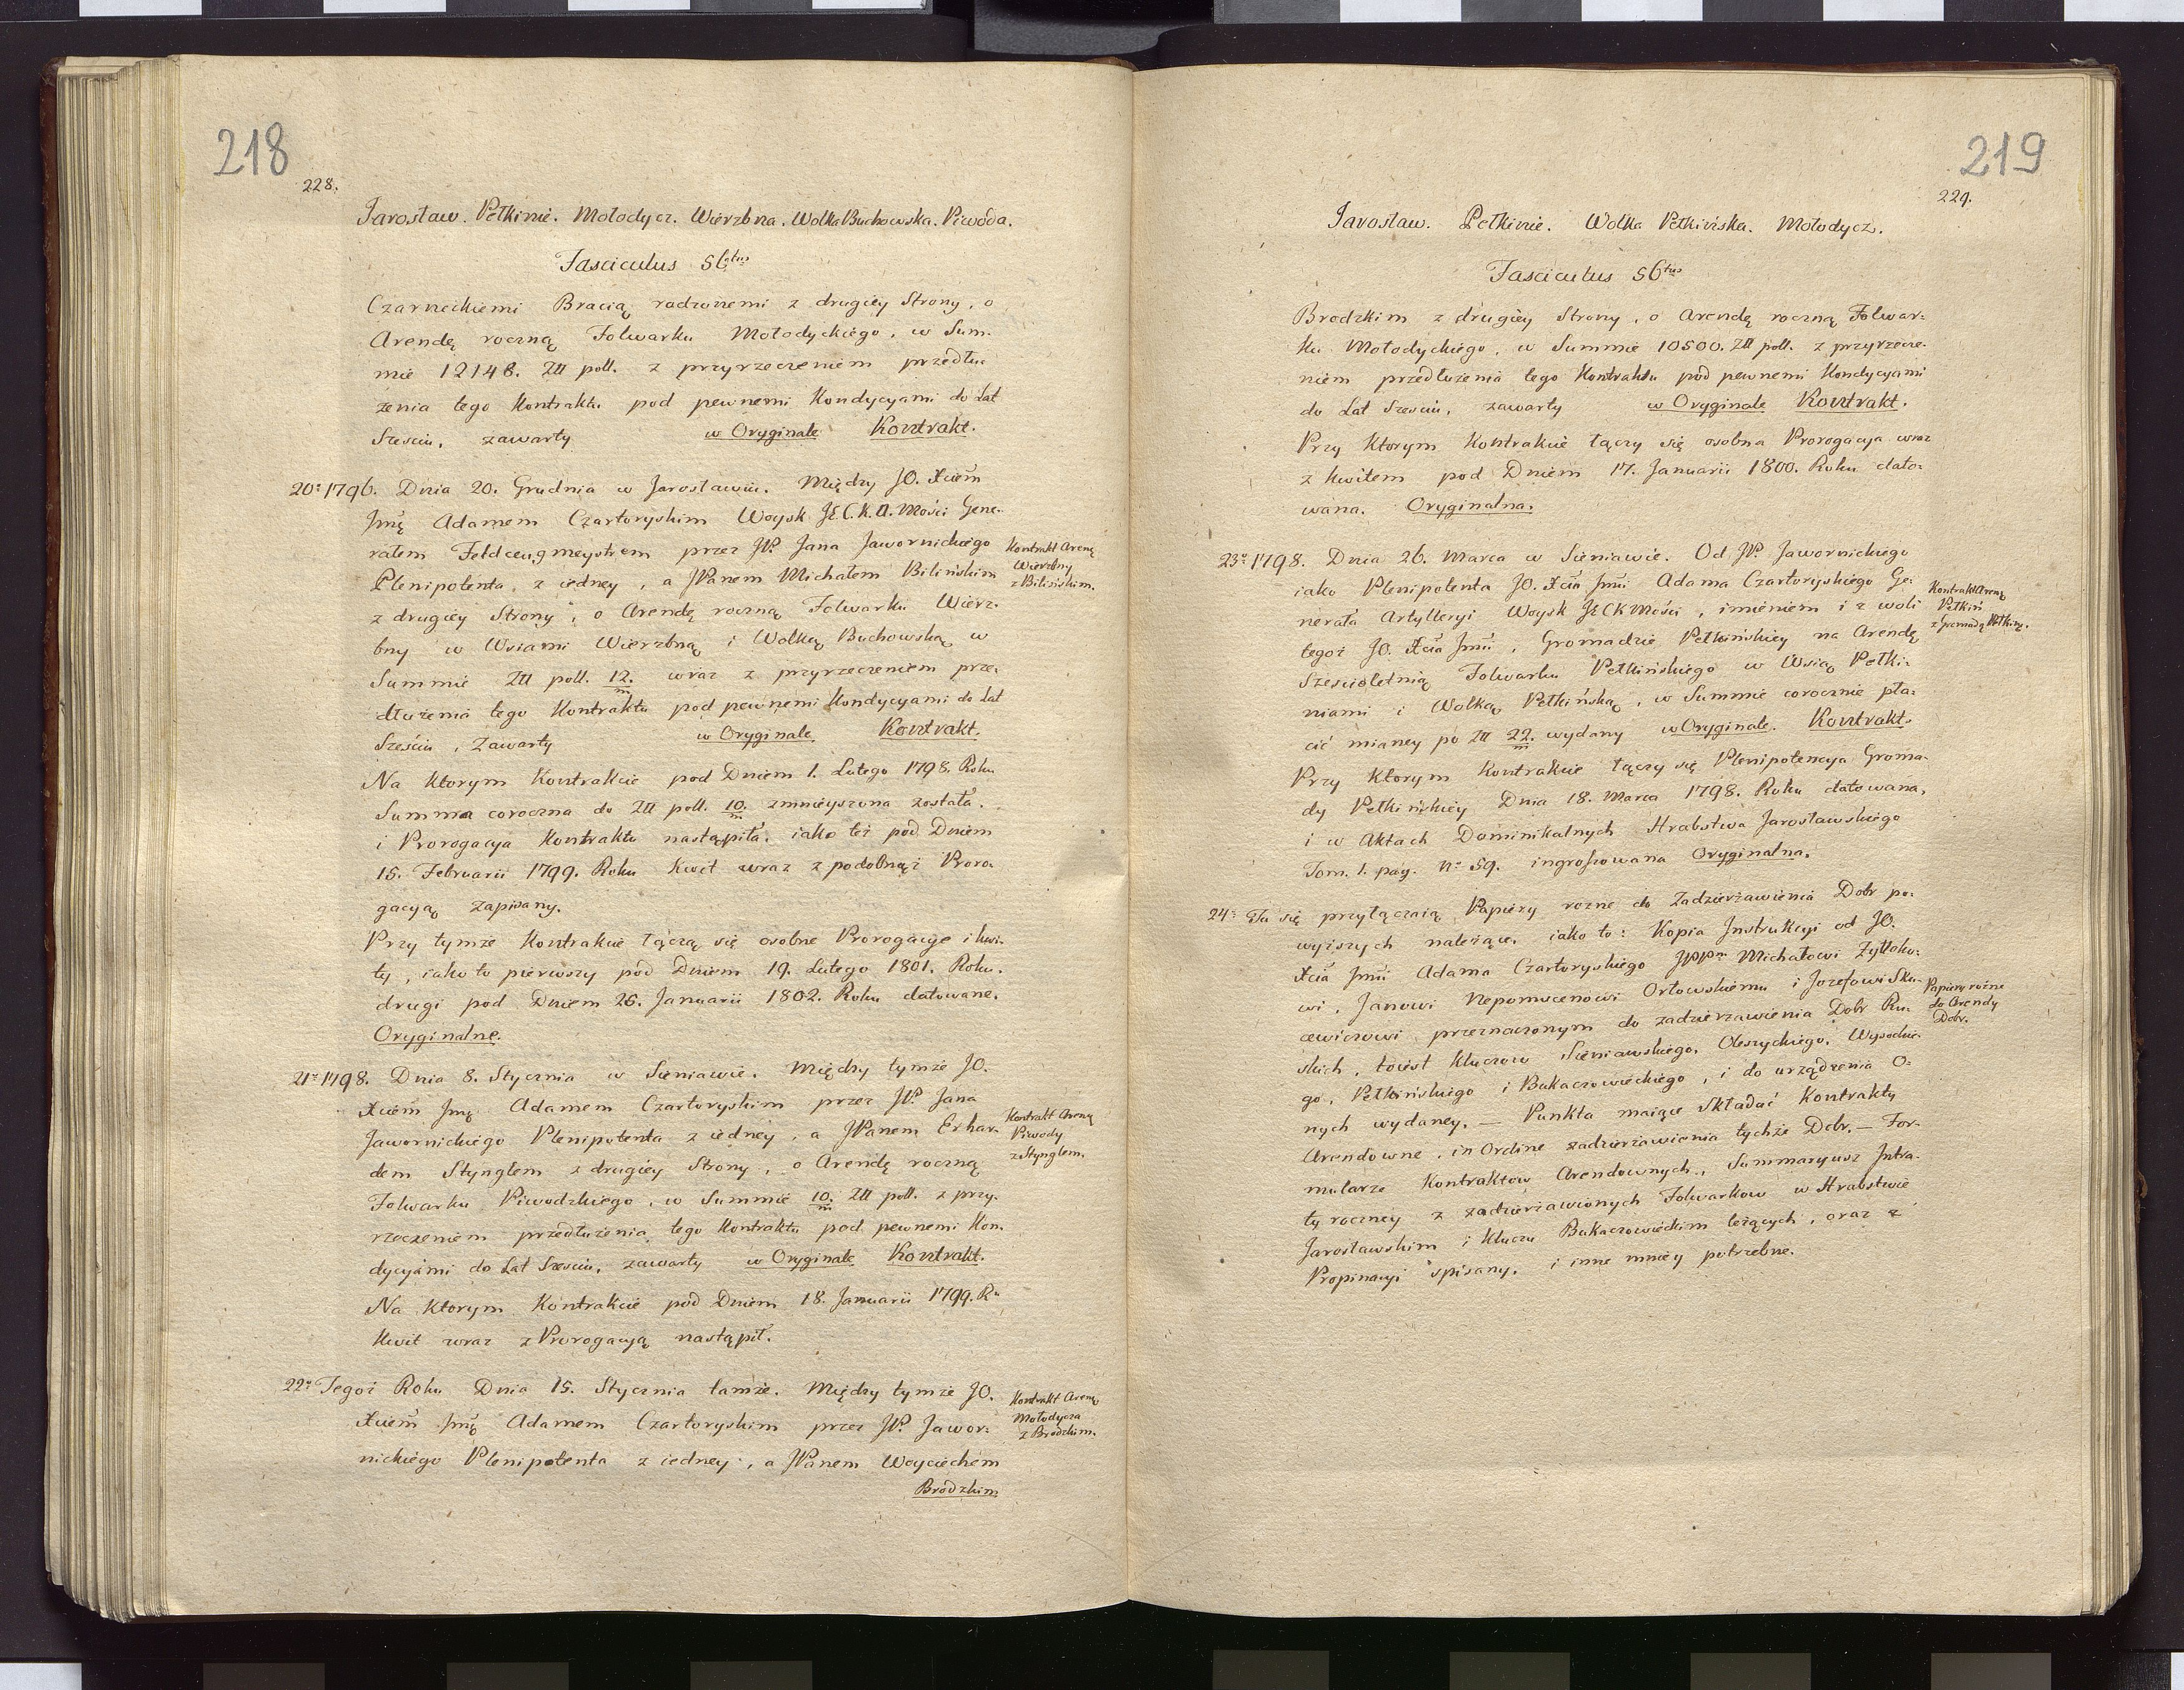 218
228.
Jarosław. Pełkinie. Mołodycz. Wierzbna. Wolka Buchowska. Piwoda.
Fasciculus 56tus
Czarneckiemi Bracią rodzonemi z drugiey Strony, o
Arendę roczną Folwarku Mołodyckiego, w Sum-
mie 12148. Złł poll. z przyrzeczeniem przedłu-
żenia tego Kontraktu pod pewnemi Kondycyami do Lat
Sześciu, zawarty w Oryginale Kontrakt.
20º 1796. Dnia 20. Grudnia w Jarosławiu. Między JO. Xciem
Jmę Adamem Czartoryskim Woysk JE.C.K.A. Mości Gene-
rałem Feldceugmeystrem przez JP. Jana Jawornickiego
Plenipotenta, z iedney, a JPanem Michałem Bilińskim
z drugiey Strony, o Arendę roczną Folwarku Wierz-
bny w Wsiami Wierzbną i Wolką Buchowską w
Summie Złł poll. 12/m. wraz z przyrzeczeniem prze-
dłużenia tego Kontraktu pod pewnemi Kondycyami do Lat
Sześciu, Zawarty w Oryginale Kontrakt.
Kontrakt Areną
Wierzbny
z Bilińskim.
Na ktorym Kontrakcie pod Dniem 1. Lutego 1798. Roku
Summa coroczna do Złł poll. 10/m. zmnieyszona została.
i Prorogacya Kontraktu nastąpiła. iako też pod Dniem
15. Februarii 1799. Roku Kwit wraz z podobnąż Proro-
gacyą zapisany.
Przy tymże Kontrakcie łączą się osobne Prorogacye i kwi-
ty, iako to pierwszy pod Dniem 19. Lutego 1801. Roku.
drugi pod Dniem 26. Januarii 1802. Roku datowane.
Oryginalne.
21º 1798. Dnia 8. Stycznia w Sieniawie. Między tymże JO.
Xciem Jmę Adamem Czartoryskim przez JP. Jana
Jawornickiego Plenipotenta z iedney, a JPanem Erhar-
dem Stynglem z drugiey Strony, o Arendę roczną
Folwarku Piwodzkiego, w Summie 10/m. Złł poll. z przy-
rzeczeniem przedłużenia tego Kontraktu pod pewnemi Kon-
dycyami do Lat Sześciu, zawarty w Oryginale Kontrakt.
Kontrakt Areną
Piwody
z Stynglem.
Na ktorym Kontrakcie pod Dniem 18. Januarii 1799. Ru
Kwit wraz z Prorogacyą nastąpił.
22º Tegoż Roku Dnia 15. Stycznia tamże. Między tymże JO.
Xciem Jmę Adamem Czartoryskim przez JP. Jawor-
nickiego Plenipotenta z iedney, a JPanem Woyciechem
Brodzkim
Kontrakt Areną
Mołodycza
z Brodzkim.
219
229.
Jarosław. Pełkinie. Wolka Pełkińska. Mołodycz.
Fasciculus 56tus
Brodzkim z drugiey Strony, o Arendę roczną Folwar-
ku Mołodyckiego, w Summie 10500. Złł poll. z przyrzecze-
niem przedłużenia tego Kontraktu pod pewnemi Kondycyami
do Lat Sześciu, zawarty w Oryginale Kontrakt.
Przy ktorym Kontrakcie łączy się osobna Prorogacya wraz
z kwitem pod Dniem 17. Januarii 1800. Roku dato-
wana. Oryginalna.
23º 1798. Dnia 26. Marca w Sieniawie. Od JP. Jawornickiego
iako Plenipotenta JO. Xcia Jmci Adama Czartoryskiego Ge-
nerała Artylleryi Woysk JECK Mości, imieniem i z woli
tegoż JO. Xcia Jmci, Gromadzie Pełkińskiey na Arendę
Sześcioletnią Folwarku Pełkińskiego w Wsią Pełki-
niami i Wolką Pełkińską, w Summie corocznie pła-
cić mianey po Złł 22/m. wydany w Oryginale. Kontrakt.
Kontrakt Areną
Pełkiń
z Gromadą Pełkiną.
Przy ktorym Kontrakcie łączy się Plenipotencya Groma-
dy Pełkińskiey Dnia 18. Marca 1798. Roku datowana,
i w Aktach Dominikalnych Hrabstwa Jarosławskiego
Tom. 1. pag. nº 59. ingrossowana Oryginalna.
24º Tu się przyłączaią Papiery rożne do Zadzierżawienia Dobr po-
wyższych należące. iako to: Kopia Instrukcyi od JO.
Xcia Jmci Adama Czartoryskiego JPPm Michałowi Żytłoko-
wi, Janowi Nepomucenowi Orłowskiemu i Jozefowi Sku-
cewiczowi przeznaczonym do zadzierżawienia Dobr Ru-
skich, toiest Kluczow Sieniawskiego, Oleszyckiego, Wysockie-
go, Pełkińskiego i Bukaczowieckiego, i do urządzenia O-
nych wydaney. — Punkta maiące składać Kontrakty
Arendowne, in Ordine zadzierżawienia tychże Dobr. — For-
mularze Kontraktow Arendownych, Summaryusz Intra-
ty roczney z zadzierżawionych Folwarkow w Hrabstwie
Jarosławskim i Kluczu Bukaczowieckim leżących, oraz z
Propinacyi spisany. i inne mniey potrzebne.
Papiery rożne
do Arendy
Dobr.